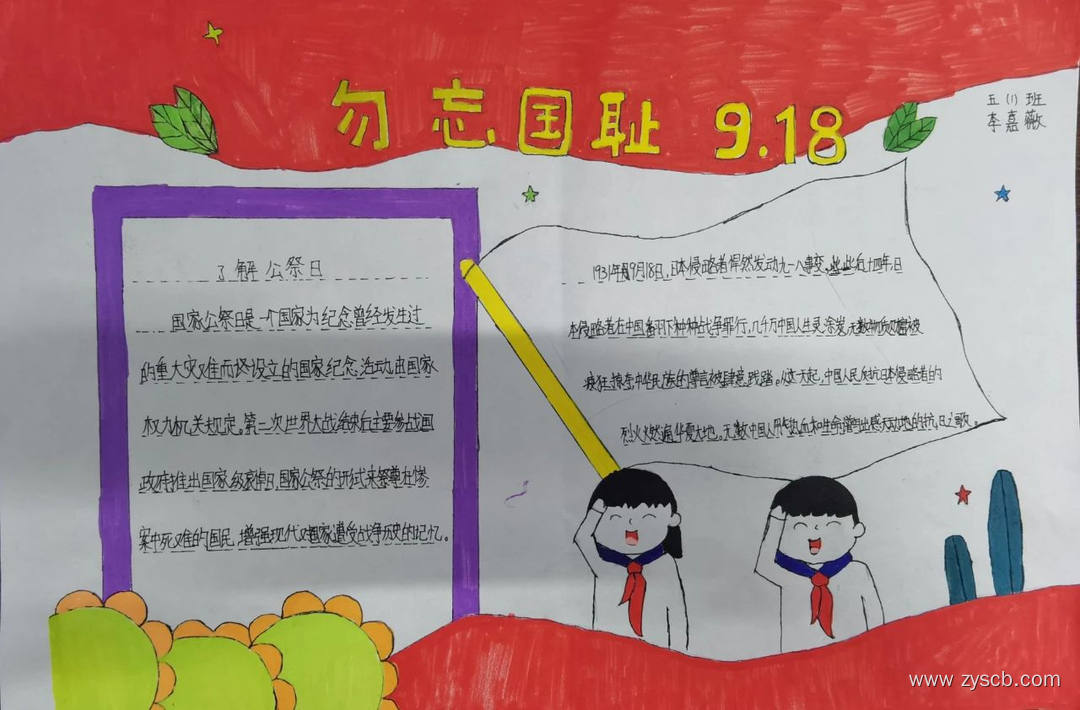 勿忘国耻 9.18
五(1)班
李嘉薇
了解公祭日
国家公祭日是一个国家为纪念曾经发生过
的重大灾难而设立的国家纪念活动,由国家
权力机关规定。第二次世界大战结束后主要参战国
政府推出国家级哀悼日,国家公祭的形式来祭奠在惨
案中死难的国民,增强现代对国家遭受战争历史的记忆。
1931年9月18日,日本侵略者悍然发动九一八事变,此后十四年,日
本侵略者在中国犯下种种战争罪行,几千万中国人生灵涂炭,无数物质财富被
疯狂掠夺中华民族的尊言被肆意践踏。从这天起,中国人民反抗日本侵略者的
烈火燃遍华夏大地。无数中国人用热血和生命谱写出感天动地的抗日之歌。
www.zyscb.com